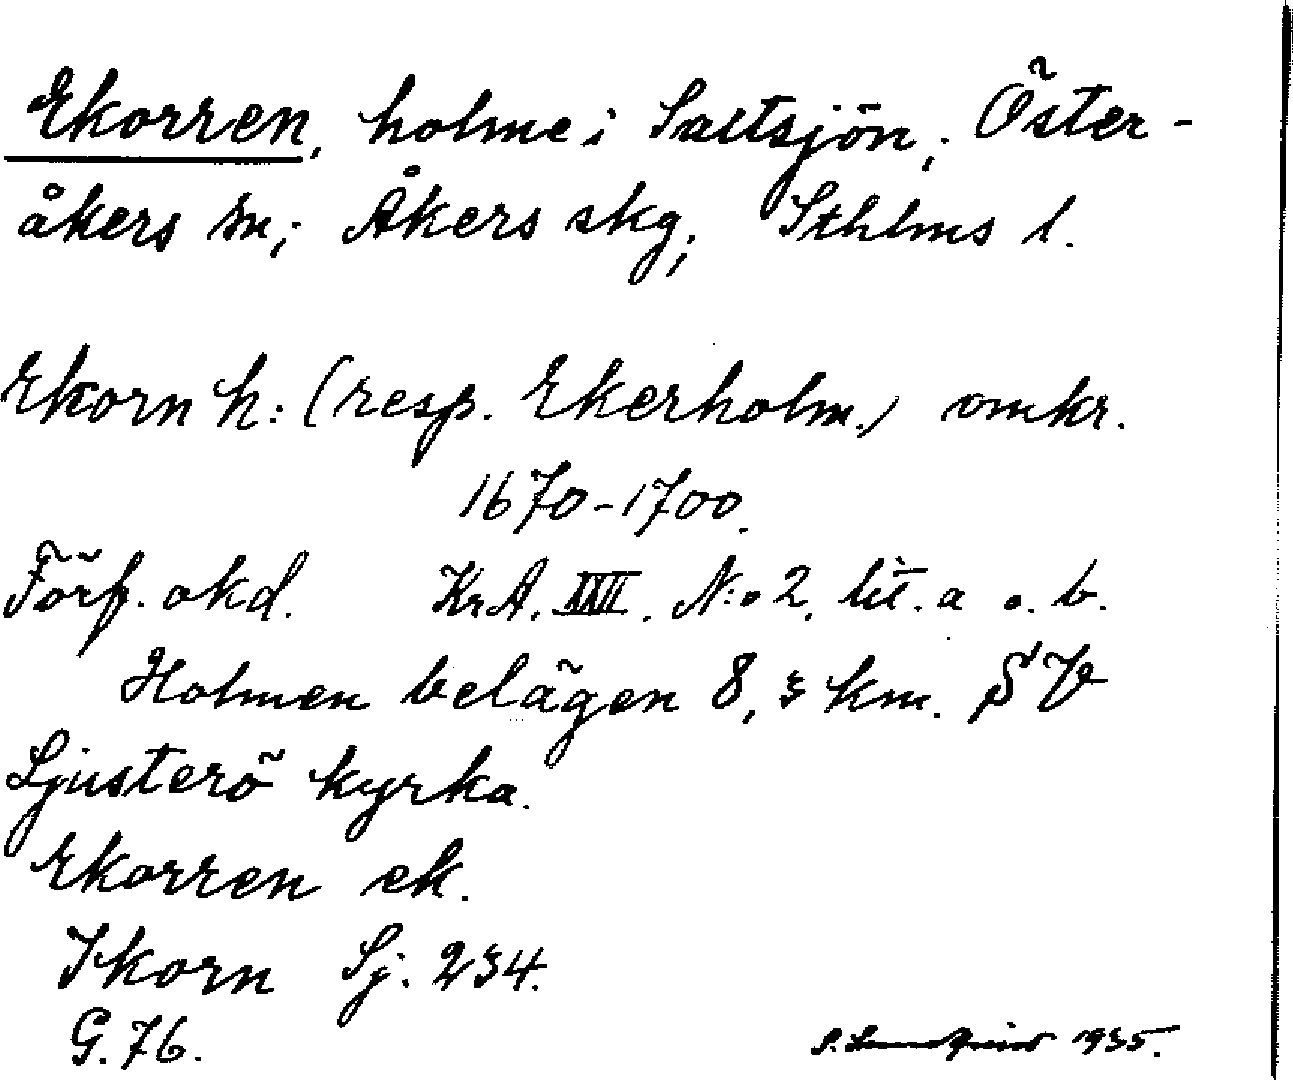 Ekorren, holme i Saltsjön; Öster-
åkers sn; Åkers skg; Sthlms l.
Ekorn h: (resp. Ekerholm.) omkr.
1670-1700.
Förf. okd. KrA. XXII. N:o 2. lit. a o. b.
Holmen belägen 8,3 km. SV
Ljusterö kyrka.
Ekorren ek.
Ikorn Sj. 234.
G. 76.
1935.